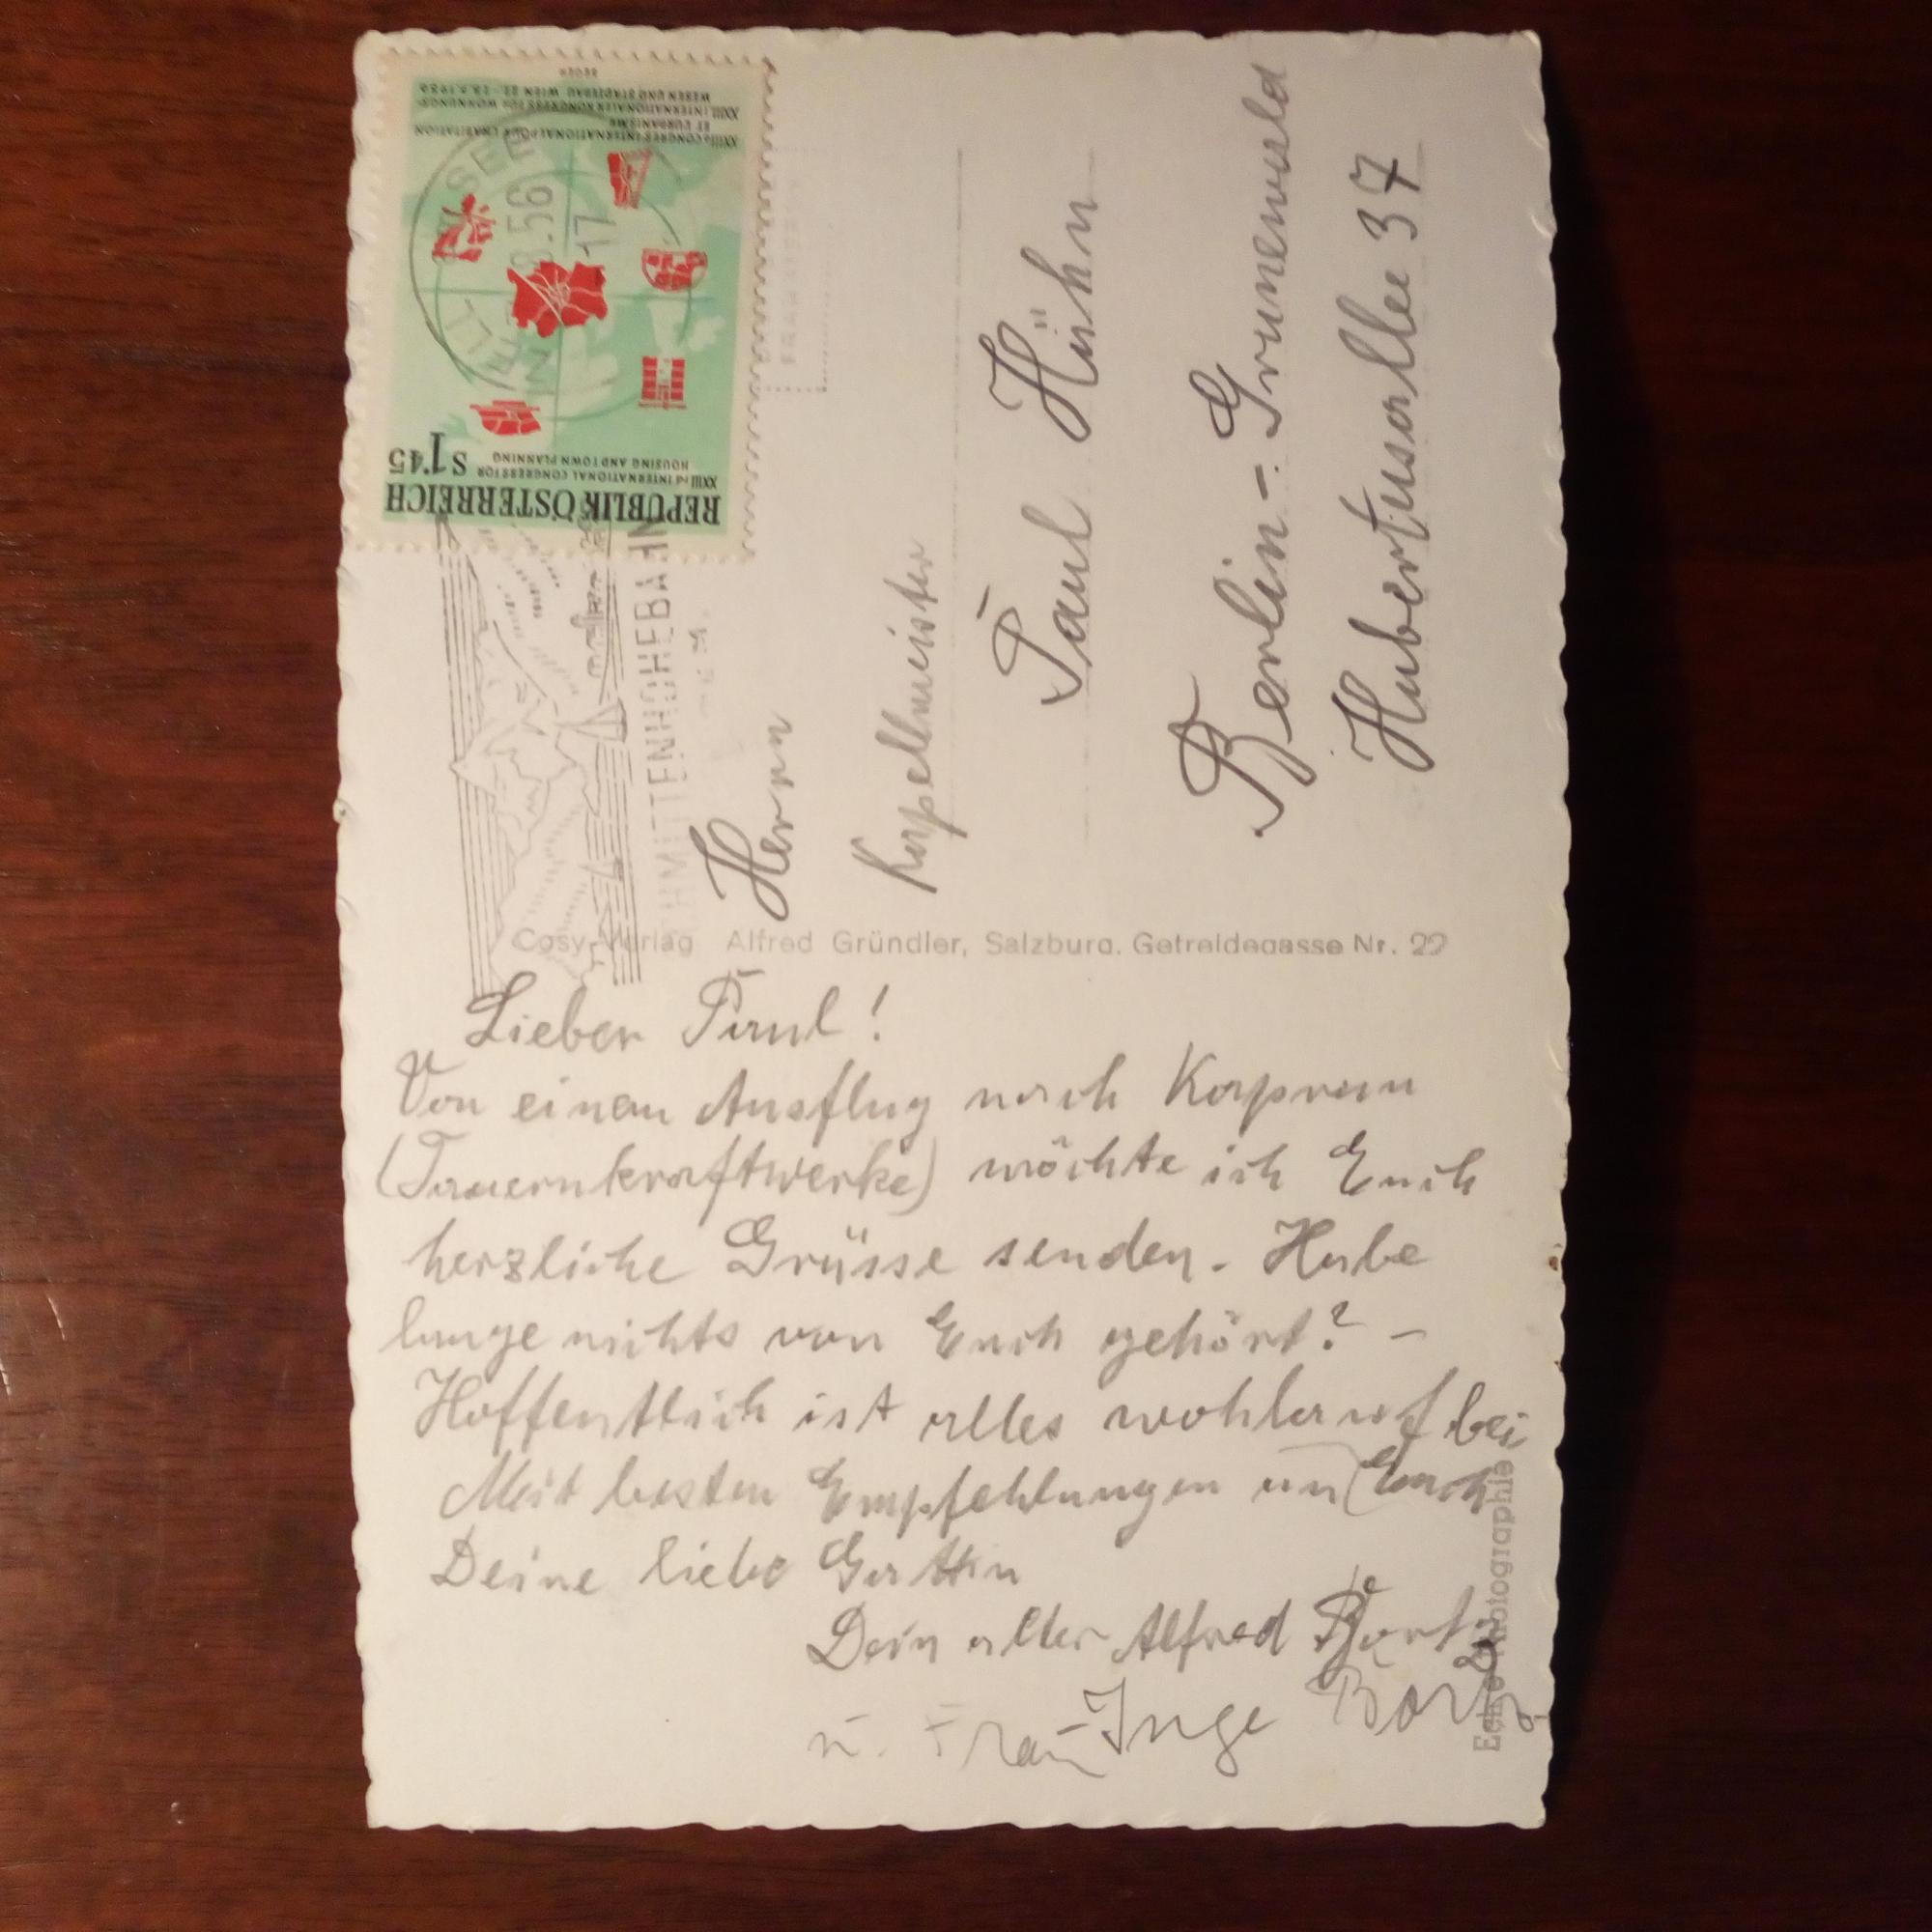 REPUBLIK ÖSTERREICH
XXIIIrd INTERNATIONAL CONGRESS FOR
HOUSING AND TOWN PLANNING
S 1·45
XXIIIe CONGRES INTERNATIONAL POUR L'HABITATION
ET L'URBANISME
XXIII. INTERNATIONALER KONGRESS FÜR WOHNUNGS-
WESEN UND STÄDTEBAU WIEN 22.-28.7.1956
SEGER
ZELL SEE
8.56
17
SCHMITTENHÖHEBAHN
Herrn
Kapellmeister
Paul Hühn
Berlin-Grunewald
Hubertusallee 37
Cosy-Verlag Alfred Gründler, Salzburg, Getreidegasse Nr. 22
Lieber Paul!
Von einem Ausflug nach Kaprun
(Tauernkraftwerke) möchte ich Euch
herzliche Grüsse senden. Habe
lange nichts von Euch gehört? –
Hoffentlich ist alles wohlauf bei
Mit besten Empfehlungen an (Euch
Deine liebe Gattin
Dein alter Alfred
u. Frau Inge
Echte Photographie